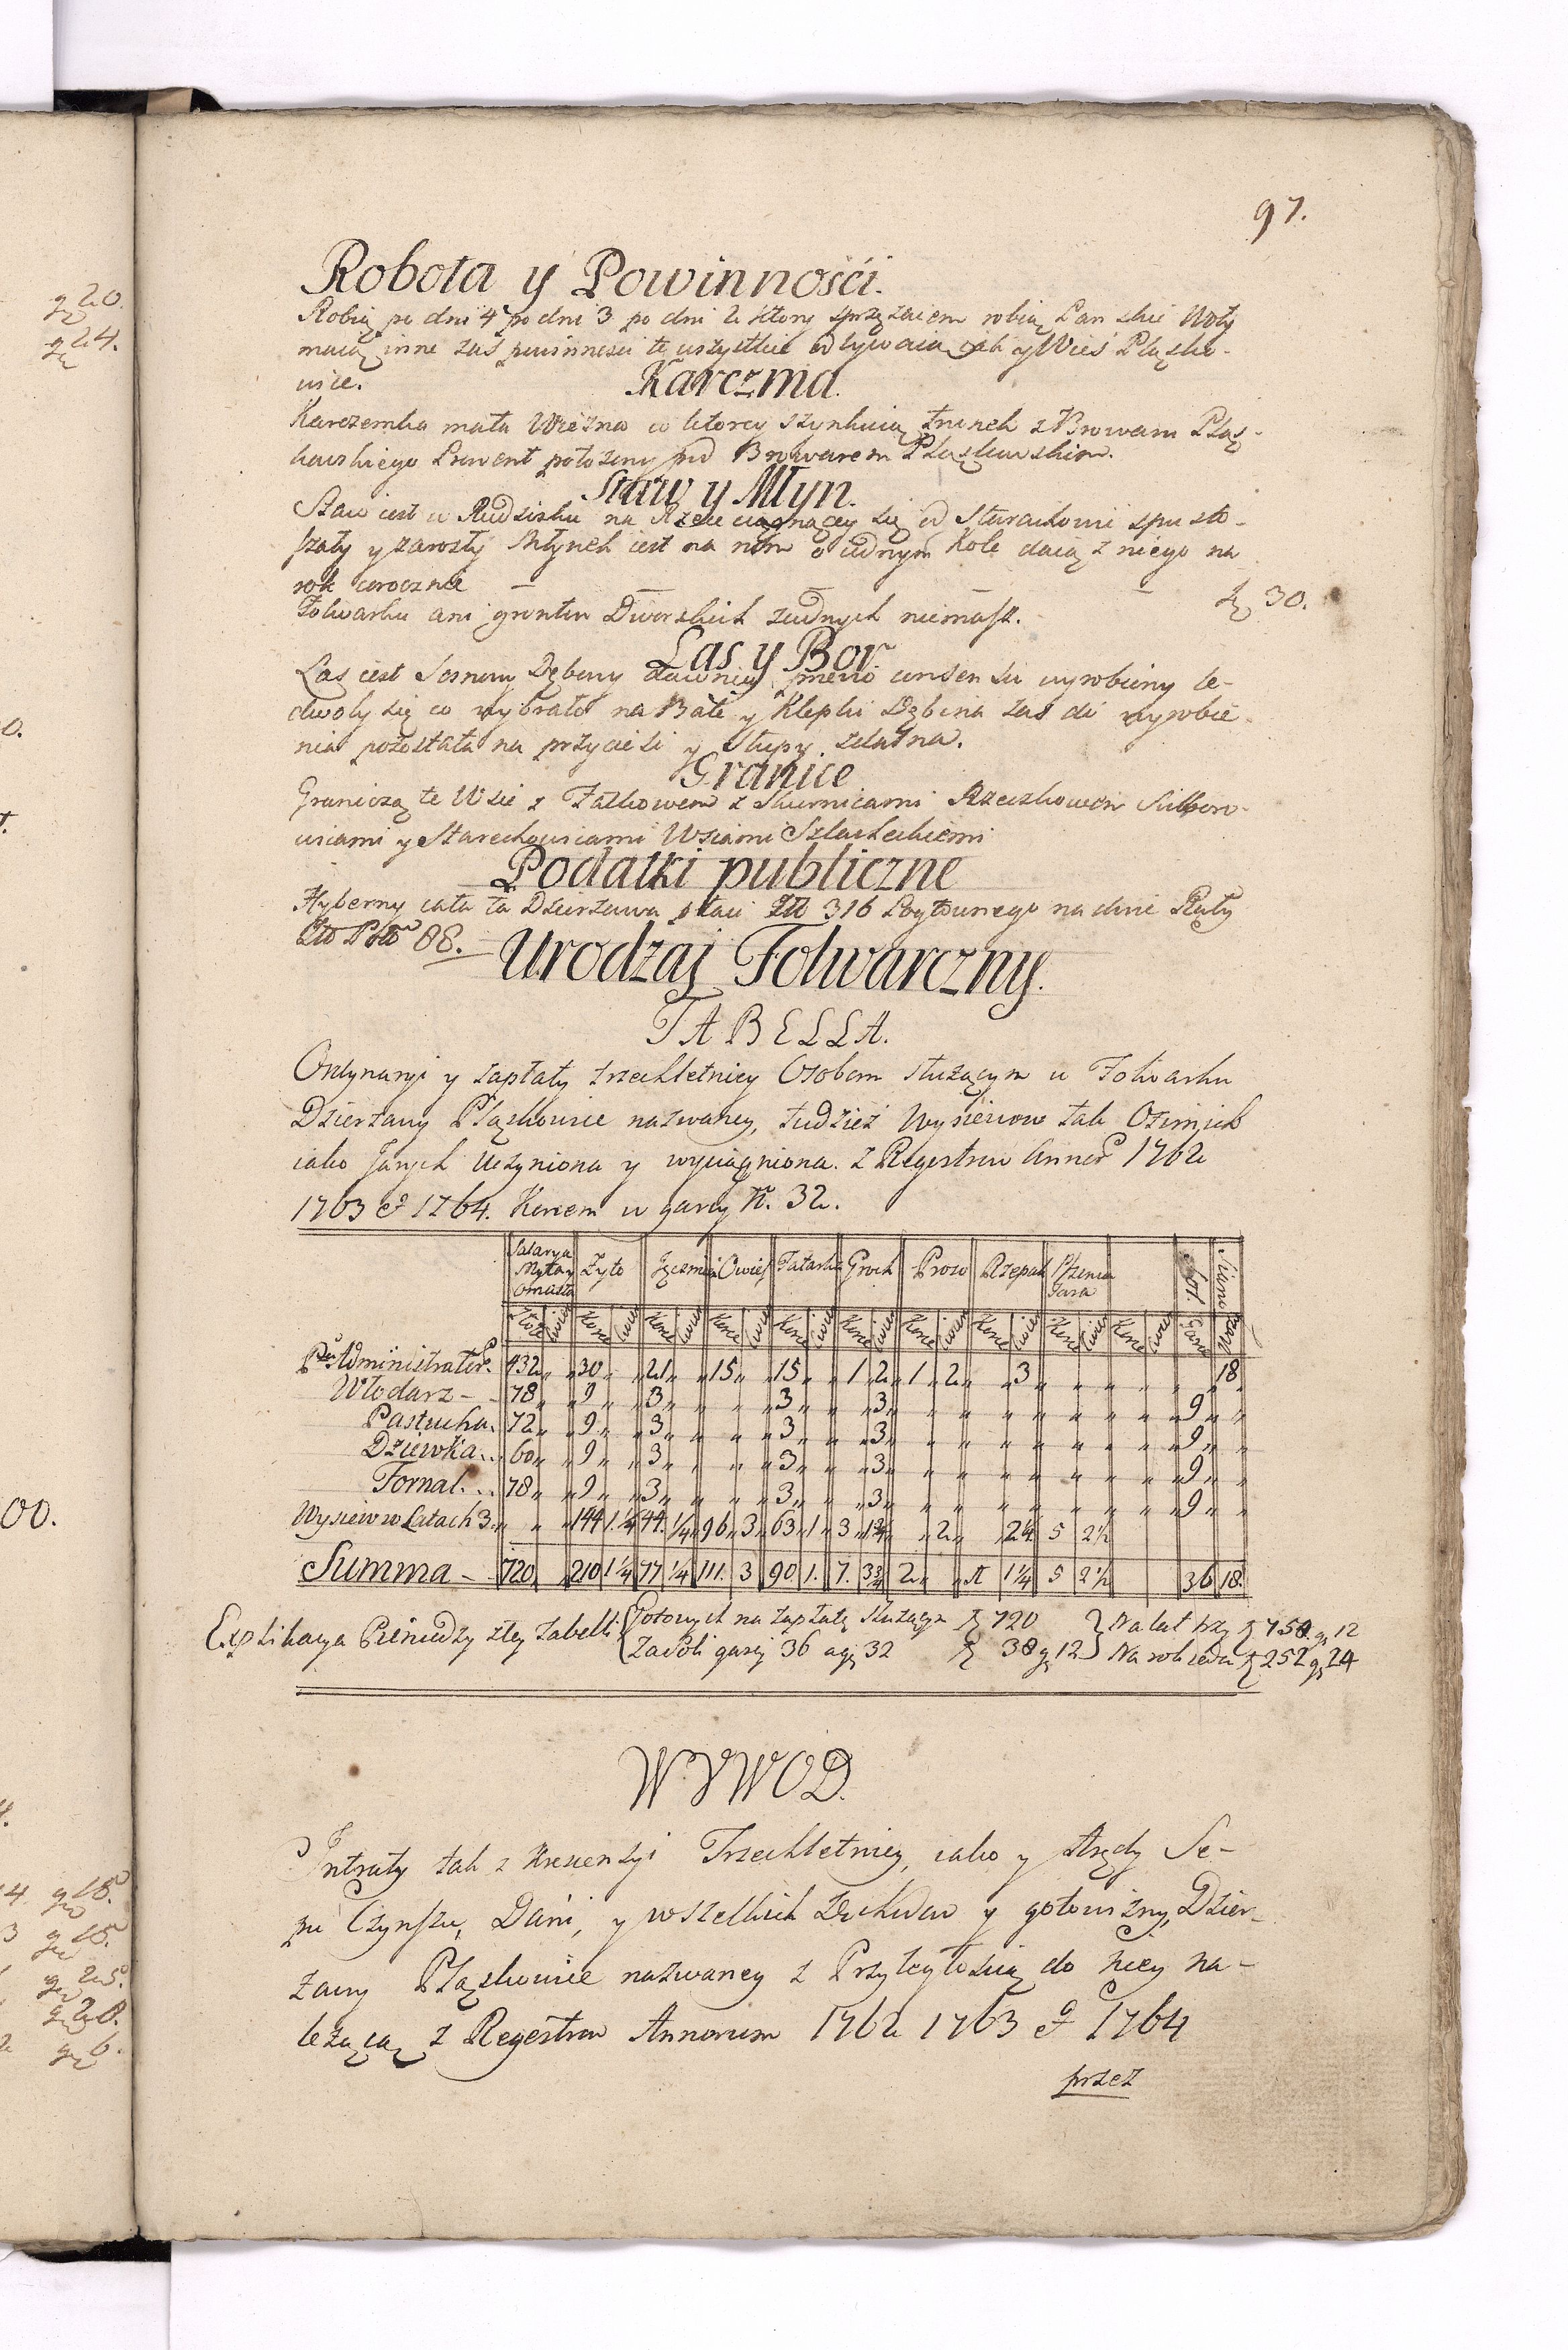 97.
Robota y Powinnośći.
Robią po dni 4 po dni 3 po dni 2 ktory sprzężaiem robią Panskie Woły
maią inne zaś powinnosci te wszystkie odbywaią jak y Wieś Plącko-
wice.
Karczma.
Karczemka mała Wiezna w ktorey szynkuią trunek z Browaru Pląc-
kowskiego Prowent położony pod Browarem Pląckowskim.
Staw y Młyn.
Staw iest w Rudzisku na Rzece ciągnącey się od Starachowic spusto-
szały y zarosły Młynek iest na nim o iednym Kole daią z niego na
rok corocznie — — — zł 30.
Folwarku ani gruntu Dworskich żadnych niemasz.
Las y Bor.
Las iest Sosnowy Dębowy dawniey consensu wyrobiony le-
dwoby się co wybrało na Bale y Klepki Dębina zas do wyrobie-
nia pozostała na przyciesi y Słupy zdatna.
Granice
Graniczą te Wsie z Fałkowem z Skurnicami Rzeczkowem
y Starechowicami Wsiami Szlacheckiemi
Podatki publiczne
Hyberny cała ta Dzierżawa płaci Zło 316 Łogżownego na dwie Raty
88.
Urodzaj Folwarczny.
TABELLA.
Ordynaryi y zapłaty trzechletniey Osobom służącym w Folwarku
Dzierżawy Pląckowice nazwaney, tudziesz Wysiewow tak Ozimich
iako Jarych Uczyniona y wyciągniona z Regestrow Annor 1762
1763 et 1764. Korcem w garcy N. 32.
Salarya Myta y Omasta Żyto Jęczmię Owies Tatarka Groch Proso Rzepak Pszenica Jara Sol. Siano
Złote Koree Cwier Koree Cwier Koree Cwier Koree Cwier Koree Cwier Koree Cwier Koree Cwier Koree Cwier Koree Cwier Garce
Administrator 432 „ 30 „ 21 „ 15 „ 15 „ 1 2 1 2 „ 3 „ „ „ „ „ 18
Włodarz — 78 „ 9 „ 3 „ „ „ 3 „ „ 3 „ „ „ „ „ „ „ „ 9 „
Pastucha. 72 „ 9 „ 3 „ „ „ 3 „ „ 3 „ „ „ „ „ „ „ „ 9 „
Dziewka.. 60 „ 9 „ 3 „ „ „ 3 „ „ 3 „ „ „ „ „ „ „ „ 9 „
Fornal... 78 „ 9 „ 3 „ „ „ 3 „ „ 3 „ „ „ „ „ „ „ „ 9 „
Wysiew w Latach 3 „ „ 144 1¼ 44 ¼ 96 3 63 1 3 1¾ „ 2 „ 2¼ 5 2½
Summa — 720 210 1¼ 77 ¼ 111. 3 90 1. 7. 3¾ 2 „ „ 1¼ 5 2½ 36 18.
Explikacya Pieniedzy z tey Tabelli Gotowych na zapłatę służącym zł 720 Na lat trzy zł 758 gr 12
Za Soli garcy 36 a gr 32 zł 38 gr 12 Na rok ieden zł 252 gr 24
WYWOD.
Intraty tak z Krescencyi Trzechletniey, iako y Arędy Se-
pu Czynszu, Dani, y wszelkich y gotowizny, Dzier-
żawy Pląckowice nazwaney z Przyległoscią do niey na-
leżącą z Regestrow Annorum 1762 1763 et 1764
przez